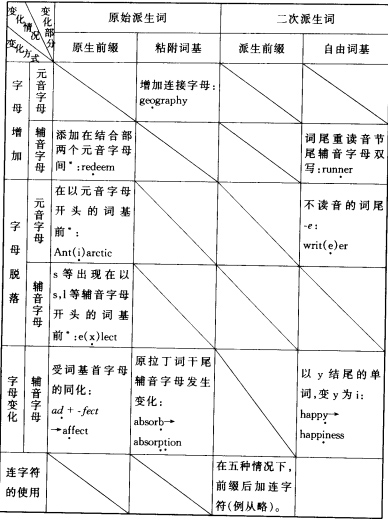 变化情况
变化部分
变化方式
原始派生词
二次派生词
原生前缀
粘附词基
派生前缀
自由词基
字母增加
元音字母
增加连接字母:
geography
辅音字母
添加在结合部
两个元音字母
间*:redeem
词尾重读音节
尾辅音字母双
写:runner
字母脱落
元音字母
在以元音字母
开头的词基
前*:
Ant(i)arctic
不读音的词尾
-e:
writ(e)er
辅音字母
s等出现在以
s,l等辅音字母
开头的词基
前*:e(x)lect
字母变化
辅音字母
受词基首字母
的同化:
ad + -fect
→affect
原拉丁词干尾
辅音字母发生
变化:
absorb→
absorption
以y结尾的单
词,变y为i:
happy→
happiness
连字符
的使用
在五种情况下,
前缀后加连字
符(例从略)。